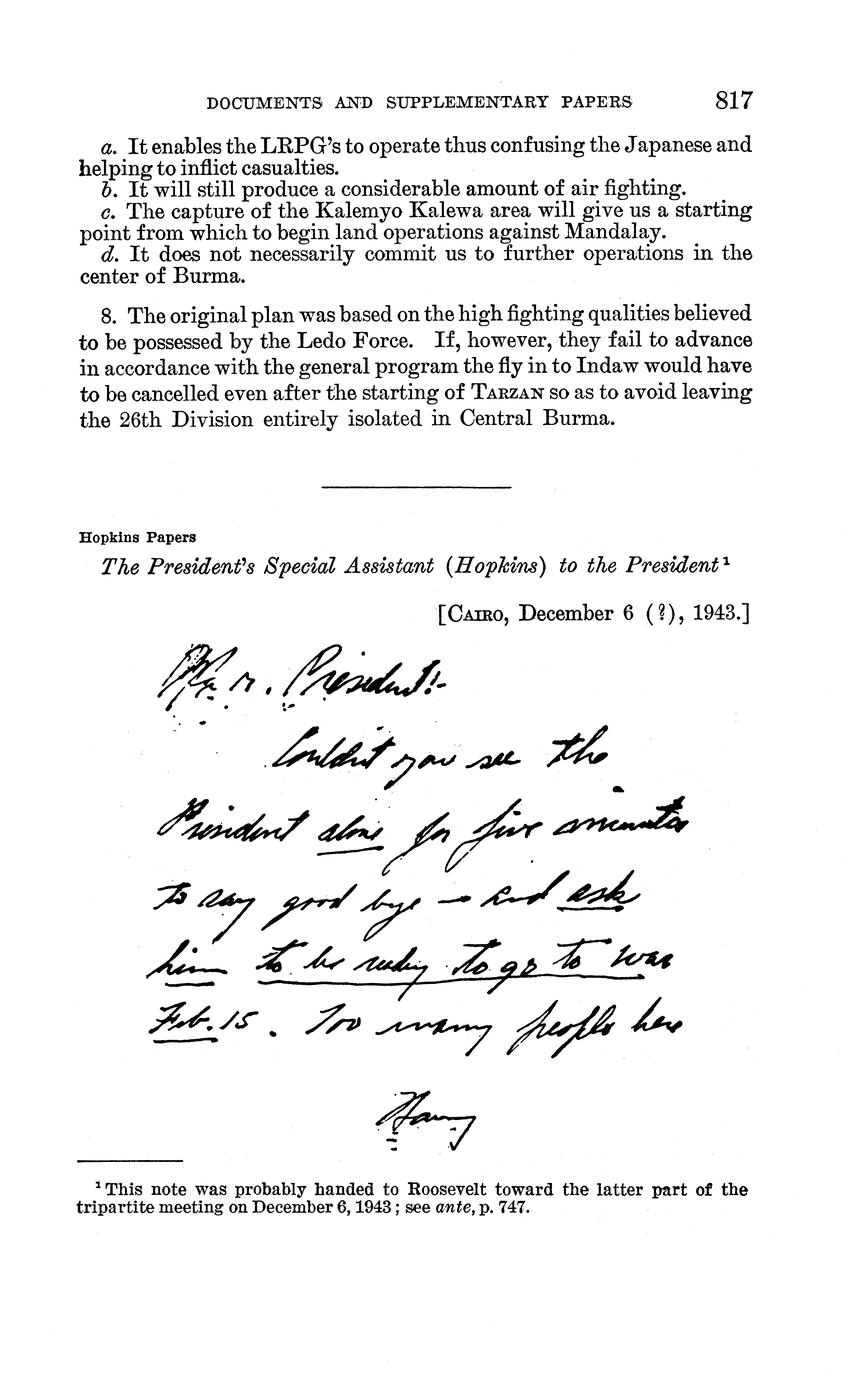 DOCUMENTS AND SUPPLEMENTARY PAPERS 817
a. It enables the LRPG's to operate thus confusing the Japanese and
helping to inflict casualties.
b. It will still produce a considerable amount of air fighting.
c. The capture of the Kalemyo Kalewa area will give us a starting
point from which to begin land operations against Mandalay.
d. It does not necessarily commit us to further operations in the
center of Burma.
8. The original plan was based on the high fighting qualities believed
to be possessed by the Ledo Force. If, however, they fail to advance
in accordance with the general program the fly in to Indaw would have
to be cancelled even after the starting of TARZAN so as to avoid leaving
the 26th Division entirely isolated in Central Burma.
Hopkins Papers
The President's Special Assistant (Hopkins) to the President¹
[CAIRO, December 6 (?), 1943.]
Mr. President:-
Couldn't you see the
President alone for five minutes
to say good bye – and ask
him to be ready to go to war
Feb. 15. Too many people here
Harry
¹ This note was probably handed to Roosevelt toward the latter part of the
tripartite meeting on December 6, 1943; see ante, p. 747.